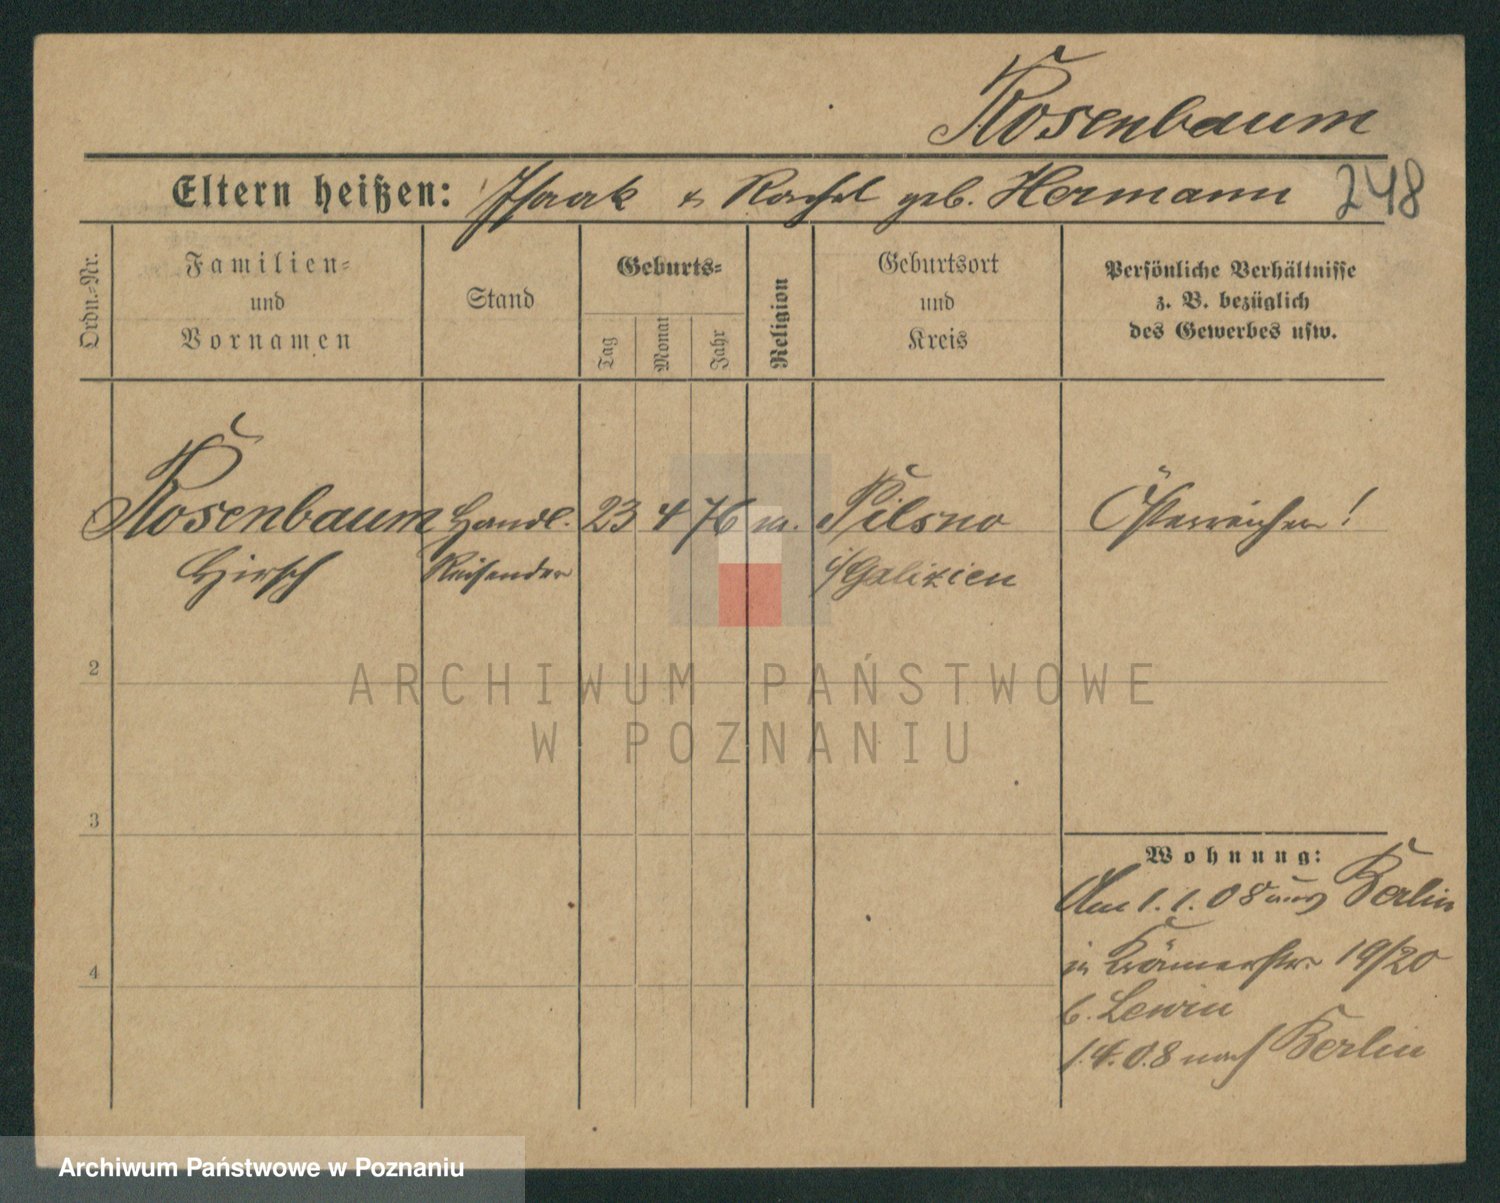 Rosenbaum
Eltern heißen: Isaak & Rachel geb. Hermann 248
Ordn.-Nr.
Familien- und Vornamen
Stand
Geburts-
Tag
Monat
Jahr
Religion
Geburtsort und Kreis
Persönliche Verhältnisse
z. B. bezüglich
des Gewerbes usw.
Rosenbaum Handl. 23 4 76 m. Pilsno Österreicher!
Hirsch Reisender i/Galizien
2
ARCHIWUM PAŃSTWOWE
W POZNANIU
3
Wohnung:
Am 1.1.08 aus Berlin
in Krämerstr. 19/20
4
b. Lewin
1.4.08 nach Berlin
Archiwum Państwowe w Poznaniu